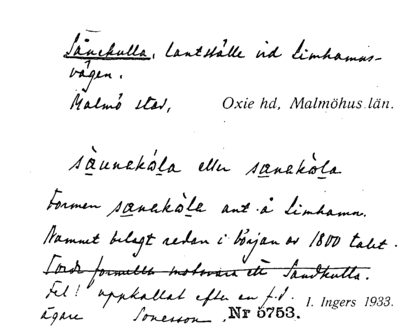 Sånekulla, lantställe vid Limhamns-
vägen.
Malmö stad, Oxie hd, Malmöhus län.
såunekåla eller sanekåla
Formen sanekåla ant. å Limhamn.
Namnet belagt redan i början av 1800 talet.
Torde formellt motsvara ett Sandkulla.
Fel! uppkallat efter en f.d.
ägare Sonesson. Nr 5753. I. Ingers 1933.